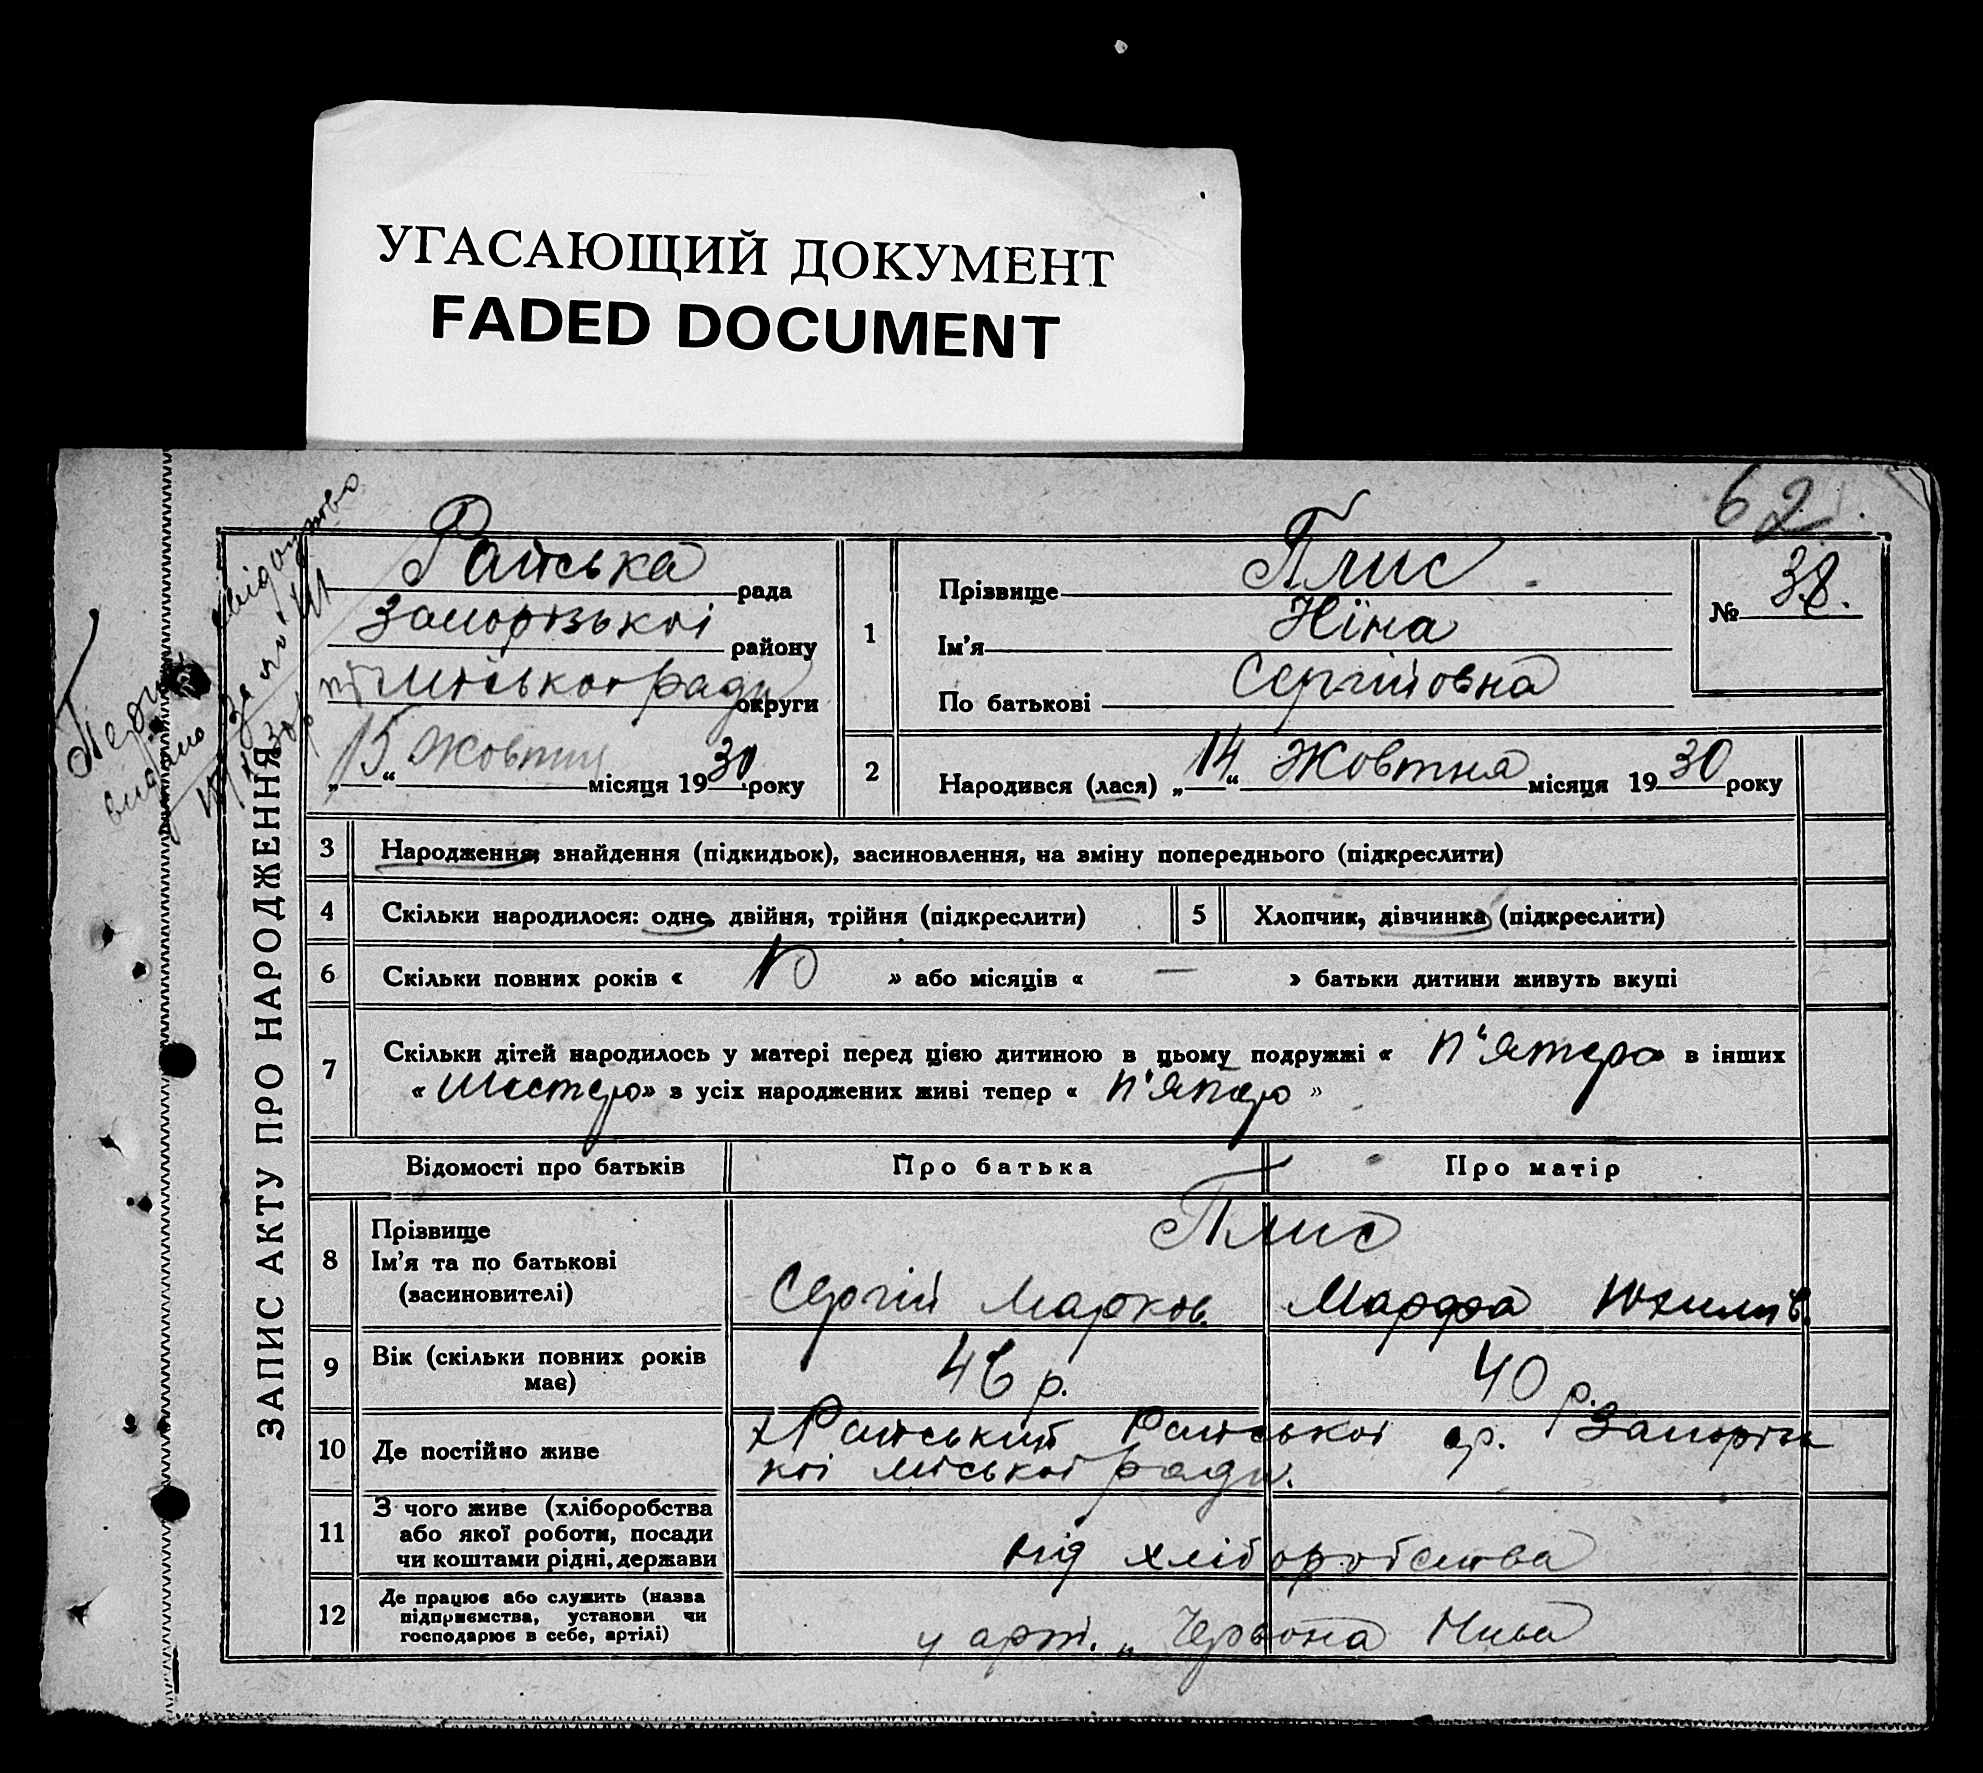 УГАСАЮЩИЙ ДОКУМЕНТ
FADED DOCUMENT
62
Перше видано
свідоцтво
за № 1
ЗАПИС АКТУ ПРО НАРОДЖЕННЯ
Райська рада
Запорізької району
міської ради округи
„15“ Жовтня місяця 1930 року
1
Прізвище Плис
Ім’я Ніна
По батькові Сергіївна
№ 38.
2
Народився (лася) „14“ Жовтня місяця 1930 року
3 Народження, знайдення (підкидьок), засиновлення, на зміну попереднього (підкреслити)
4 Скільки народилося: одне, двійня, трійня (підкреслити)
5 Хлопчик, дівчинка (підкреслити)
6 Скільки повних років « 10 » або місяців « — » батьки дитини живуть вкупі
7 Скільки дітей народилось у матері перед цією дитиною в цьому подружжі « п'ятеро » в інших
« Шестеро » з усіх народжених живі тепер « п'ятеро »
Відомості про батьків Про батька Про матір
8 Прізвище
Ім’я та по батькові
(засиновителі)
Плис
Сергій Марков. Марфа Юхимів.
9 Вік (скільки повних років має) 46 р. 40 р.
10 Де постійно живе х Райський Райської ср. Запорізь
кої міської ради.
11 З чого живе (хліборобства
або якої роботи, посади
чи коштами рідні, держави
від хліборобства
12 Де працює або служить (назва
підприємства, установи чи
господарює в себе, артілі)
у арт. „Червона Нива